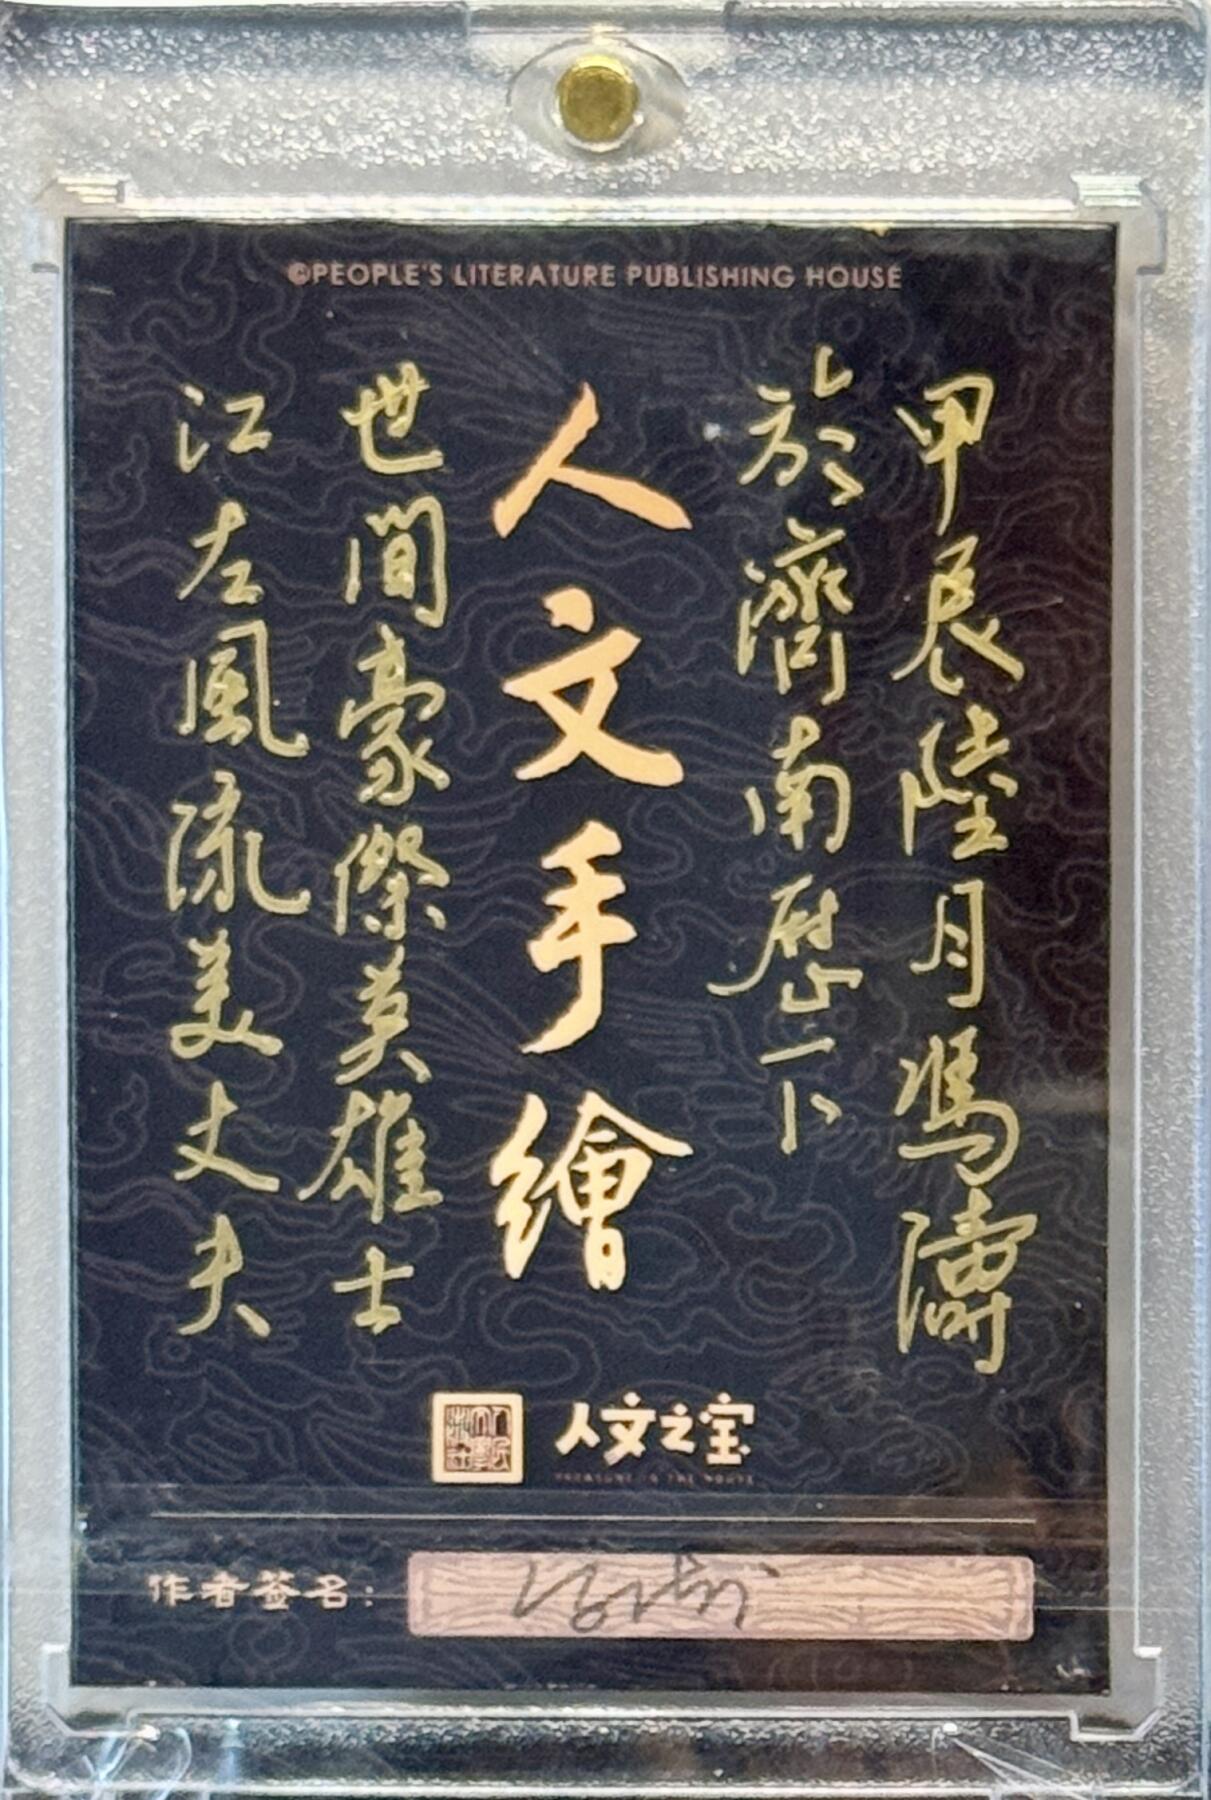 ©PEOPLE'S LITERATURE PUBLISHING HOUSE
甲辰陸月馮濤
於濟南歷下
人文手繪
世間豪傑英雄士
江左風流美丈夫
人民文學出版社
人文之宝
TREASURE IN THE HOUSE
作者签名：